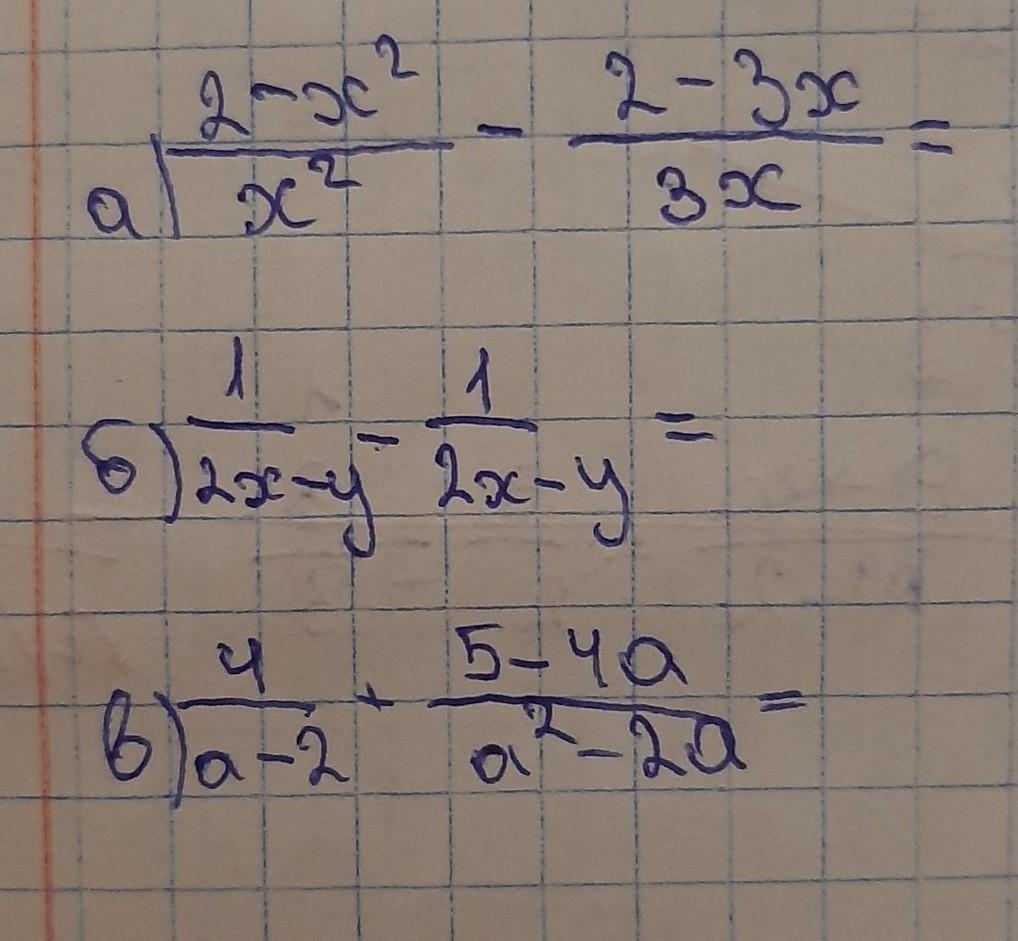 а) (2-x²)/(x²) - (2-3x)/(3x) =
б) 1/(2x-y) - 1/(2x-y) =
в) 4/(a-2) + (5-4a)/(a²-2a) =